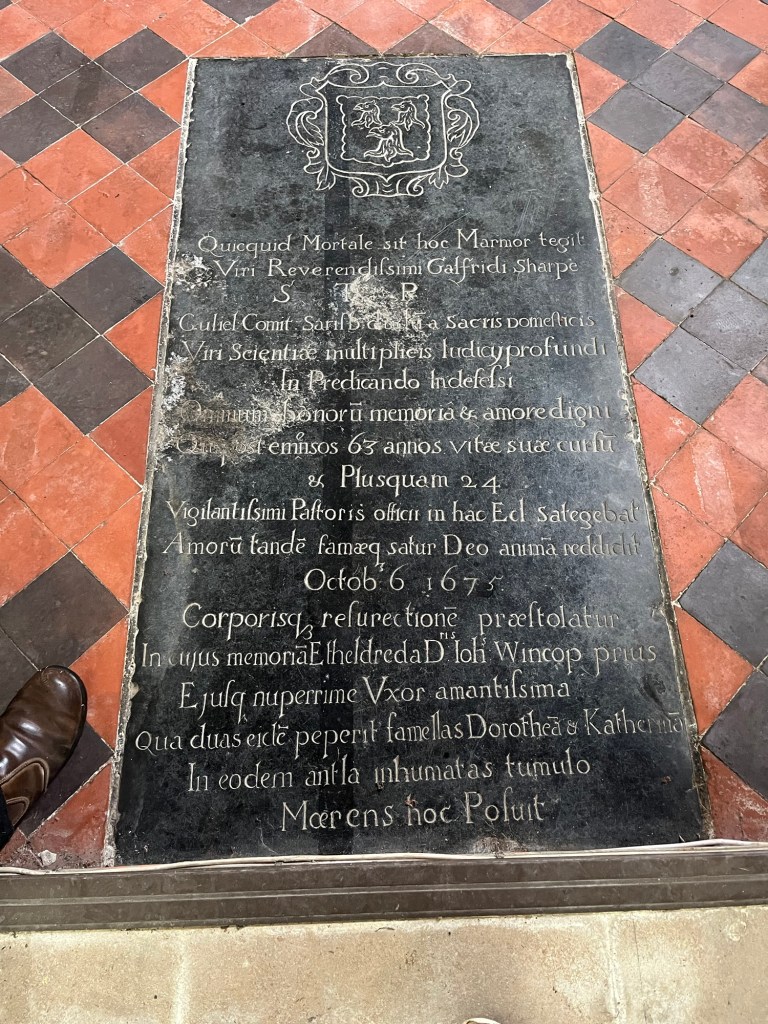 Quicquid Mortale sit hoc Marmor tegit
Viri Reverendiſsimi Galfridi Sharpe
S T P
Guliel Comit: Sarisb a Sacris Domesticis
Viri Scientiæ multiplicis Iudicy profundi
In Predicando Indefeſsi
Omnium bonorū memoriâ & amore digni
Qui post emēnsos 63 annos vitæ suæ cursū
& Plusquam 24
Vigilantiſsimi Paſtoris officii in hac Ecl Sategebat
Amorū tandē famæqꝫ satur Deo animā reddidit
Octobꝫ 6 1675
Corporisqꝫ reſurectionē præſtolatur
In cujus memoriā Etheldreda Dris Ioh̄s Wincop prius
Ejuſqꝫ nuperrime Vxor amantiſsima
Qua duas eidē peperit famellas Dorotheā & Katherinā
In eodem antea inhumatas tumulo
Mœrens hoc Poſuit